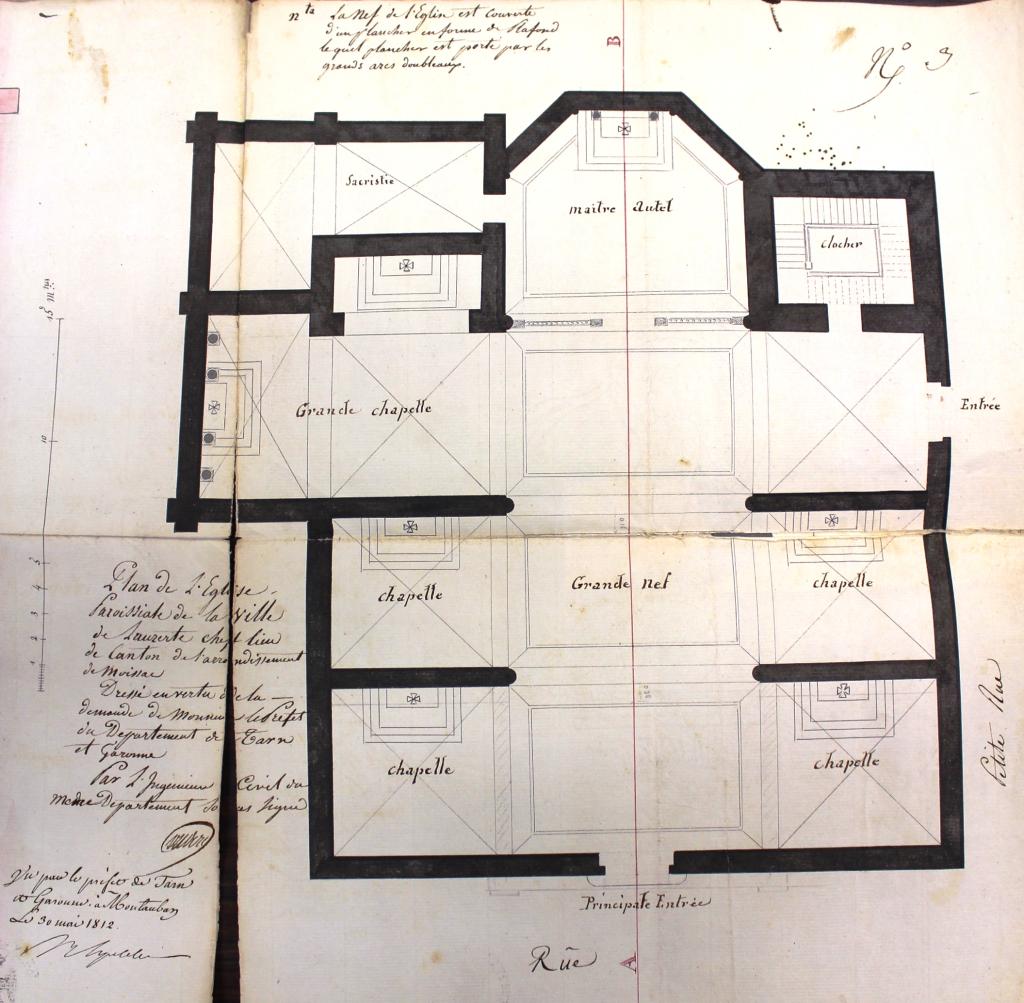 nta La Nef de l'Eglise est couverte
d'un plancher en forme de Plafond
lequel plancher est porté par les
grands arcs doubleaux.
B
N° 3
Sacristie
maitre autel
clocher
15 mtr
Grande chapelle
Entrée
10
5
4
3
2
1
chapelle
Grande nef
chapelle
Plan de L'Eglise
Paroissiale de la Ville
de Lauzerte chef lieu
de Canton de l'arrondissement
de Moissac
Dressé en vertu de la
demande de Monsieur le Préfet
du Departement de Tarn
et Garonne
Par L'Ingenieur Civil du
meme Departement Sous Signé
chapelle
chapelle
Petite Rue
Vu par le préfet de Tarn
et Garonne à Montauban
Le 30 mai 1812.
Principale Entrée
Rüe
A